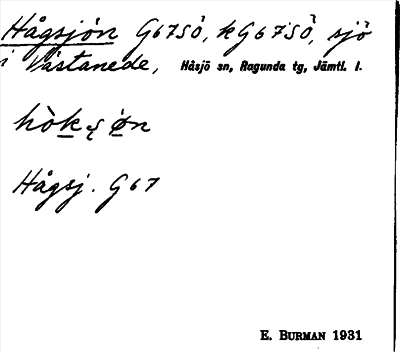 Hågsjön G67SÖ, kG67SÖ, sjö
i Västanede, Håsjö sn, Ragunda tg, Jämtl. l.
hòkşøn
Hågsj. G67
E. BURMAN 1931